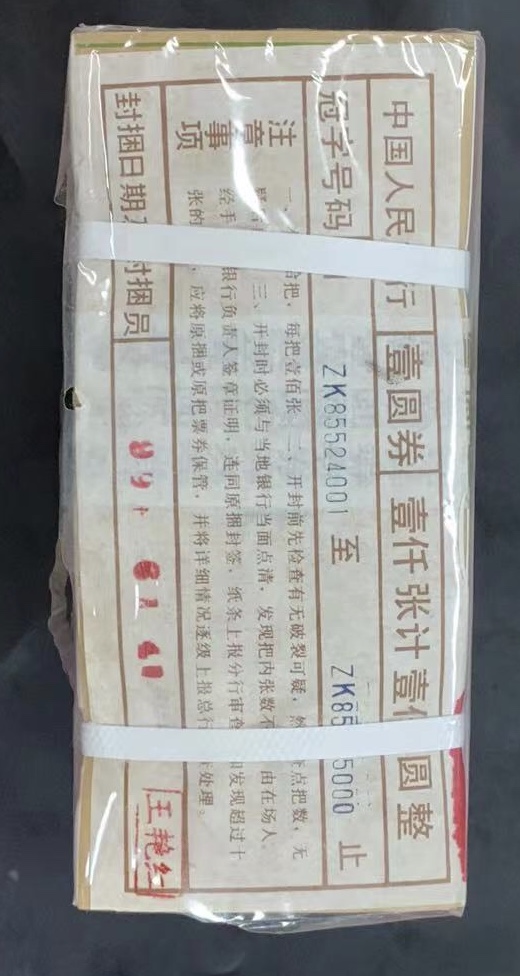 中国人民 行 壹圆券 壹仟张计壹 圆整
冠字号码 ZK85524001 至 ZK85 5000 止
注意事项
一、 把,每把壹佰张 二、开封前先检查有无破裂可疑, 点把数,无
三、开封时必须与当地银行当面点清,发现把内张数不 由在场人
经手 银行负责人签章证明,连同原捆封签,纸条上报分行审查 发现超过十
张的 应将原捆或原把票券保管,并将详细情况逐级上报总行 处理。
封捆日期 封捆员 王艳红